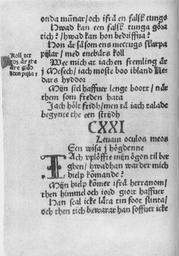 onda mänar/ och ifrå en falsk tungo
Hwad kan een falsk tunga göra
tich? hwad kan hon bedriffua?
Hon är såsom ens mectugs skarpa
pijlar/ med enebära koll
Wee mich at iach en fremling är
j Mesech/ iach moste boo ibland Ke
dars hyddor
Mijn siel haffuer lenge boott/ när
them som freden hata
Jach hölt fridh/ men tå iach talade
begynte the een strijdh
CXXI
Leuaui oculos meos
Een wisa j högdenne
Jach vplöffte mijn ögon til ber
ghen/ hwadhan mich
hielp komande?
Mijn hielp kömer ifrå herranom/
then himmel och iord giort haffuer
Han scal icke låta tin foot slinta/
och then tich bewarar han soffuer icke
Koll